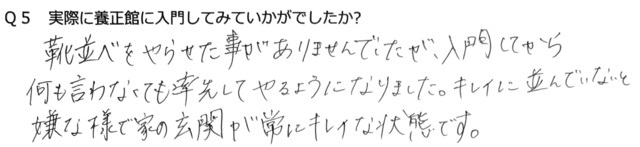 Q5 実際に養正館に入門してみていかがでしたか?
靴並べをやらせた事がありませんでしたが、入門してから
何も言わなくても率先してやるようになりました。キレイに並んでいないと
嫌な様で家の玄関が常にキレイな状態です。